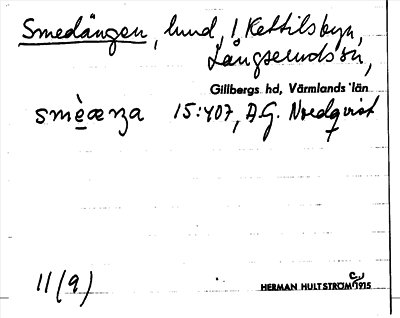 Smedängen, lund, i Kettilsbyn,
Långseruds sn,
Gillbergs hd, Värmlands län
smèæŋa 15:407, A.G. Nordqvist
11(9)
HERMAN HULTSTRÖM 1915